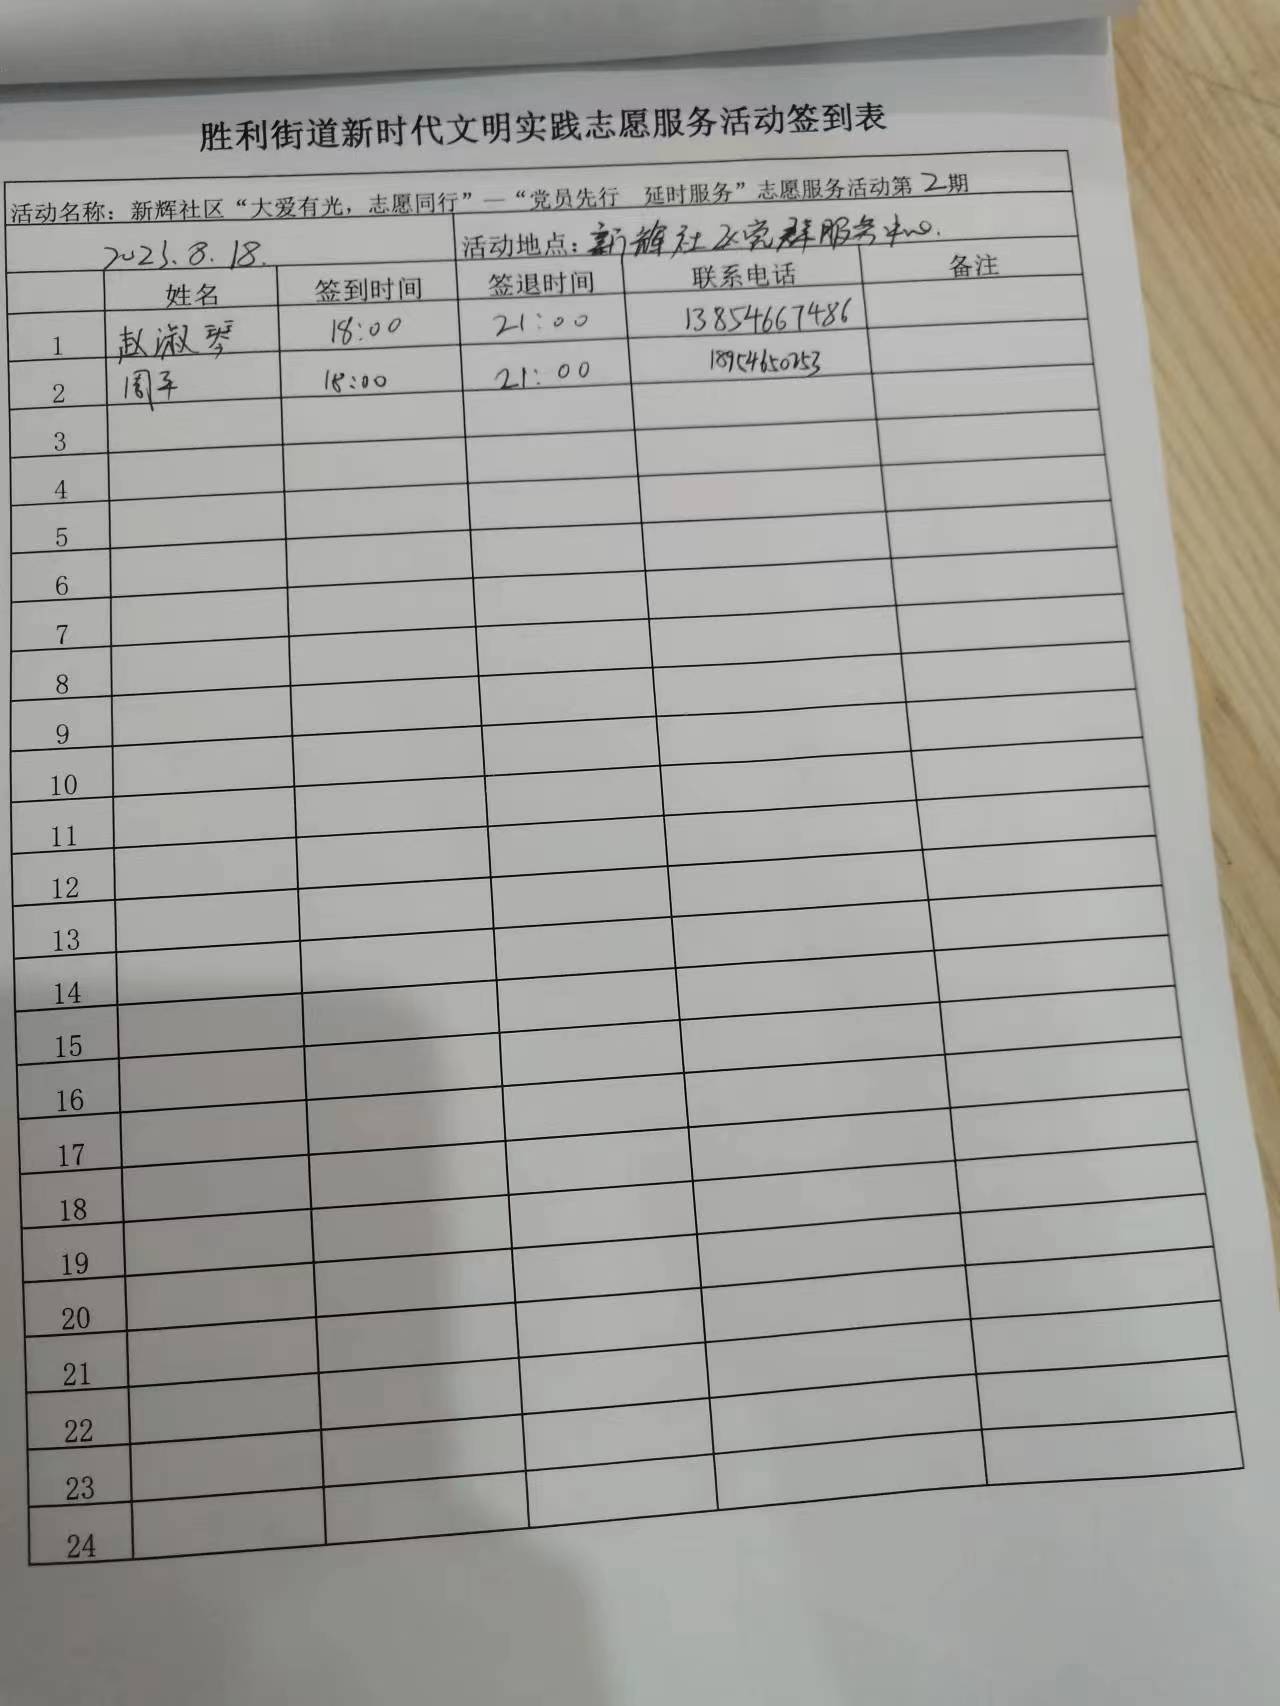 胜利街道新时代文明实践志愿服务活动签到表
活动名称：新辉社区“大爱有光，志愿同行”—“党员先行 延时服务”志愿服务活动第2期
2023.8.18. 活动地点：新辉社区党群服务中心.
姓名 签到时间 签退时间 联系电话 备注
1 赵淑琴 18:00 21:00 13854667486
2 周平 18:00 21:00 18954650253
3
4
5
6
7
8
9
10
11
12
13
14
15
16
17
18
19
20
21
22
23
24